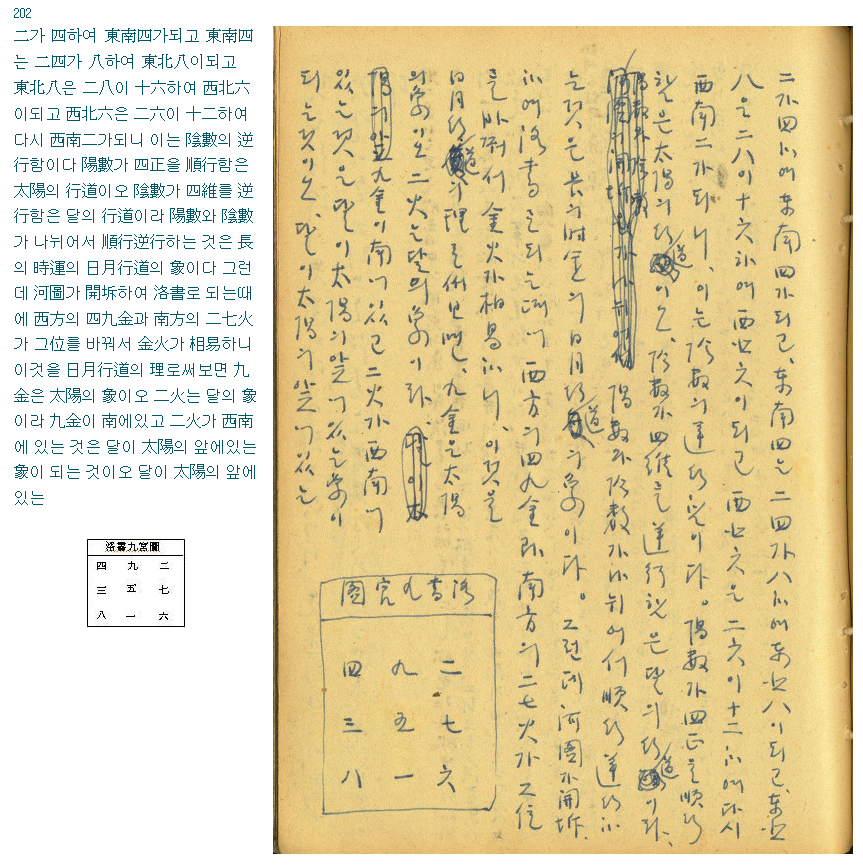 202
二가 四하여 東南四가되고 東南四
는 二四가 八하여 東北八이되고
東北八은 二八이 十六하여 西北六
이되고 西北六은 二六이 十二하여
다시 西南二가되니 이는 陰數의 逆
行함이다 陽數가 四正을 順行함은
太陽의 行道이오 陰數가 四維를 逆
行함은 달의 行道이라 陽數와 陰數
가 나뉘어서 順行逆行하는 것은 長
의 時運의 日月行道의 象이다 그런
데 河圖가 開坼하여 洛書로 되는때
에 西方의 四九金과 南方의 二七火
가 그位를 바꿔서 金火가 相易하니
이것을 日月行道의 理로써보면 九
金은 太陽의 象이오 二火는 달의 象
이라 九金이 南에있고 二火가 西南
에 있는 것은 달이 太陽의 앞에있는
象이 되는 것이오 달이 太陽의 앞에
있는
洛書九宮圖
四 九 二
三 五 七
八 一 六
二가四하여 东南四가되고, 东南四는 二四가八하여 东北八이되고, 东北
八은二八이十六하여 西北六이되고 西北六은 二六이十二하여다시
西南二가되니, 이는陰數의逆行함이다。陽數가四正을順行
함은太陽의行道이오, 陰數가四維를逆行함은달의行道이라,
陽數와陰數가나뉘어서順行逆行하
는것은長의時運의日月行道의象이다。그런데河圖가開坼
하여洛書로되는때에西方의四九金과南方의二七火가그位
를바꿔서金火가相易하니, 이것을
日月行道의理로써보면, 九金은太陽
의象이오二火는달의象이라,
九金이南에있고二火가西南에
있는것은달이太陽의앞에있는象이
되는것이오, 달이太陽의앞에있는
洛書九宮圖
四 九 二
三 五 七
八 一 六